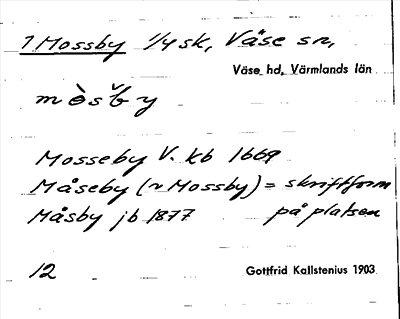 1 Mossby 1/4 sk, Väse sn,
Väse hd, Värmlands län
mòsb̌y
Mosseby V. kb 1669
Måseby (~ Mossby) = skriftform
Måsby jb 1877 på platsen
12 Gottfrid Kallstenius 1903